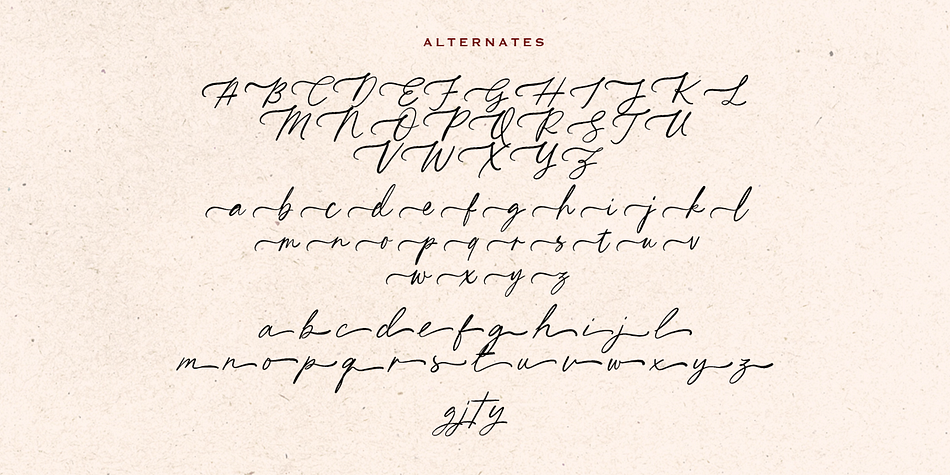 ALTERNATES
A B C D E F G H I J K L
M N O P Q R S T U
V W X Y Z
a b c d e f g h i j k l
m n o p q r s t u v
w x y z
a b c d e f g h i j l
m n o p q r s t u v w x y z
g j t y